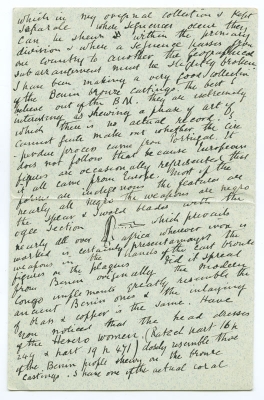 which in my original collection is kept
separate. where sequences occur they
can be shewn within the primary
division & where a sequence passes from
one country to another the geographical
sub arrangement must be slightly broken
I have been making a very good collection
of the Benin bronze castings. the best I
believe out of the B.M. they are extremely
interesting as shewing a phase of art of
which there is no actual record. I
cannot quite make out whether the cire
perdue process came from Portugal. It
does not follow that because European
figures are occasionally represented that
it all came from Europe. Most of the
forms are indigenous the features are
nearly all negro the weapons are negro
the spear & sword blades with the
ogee section which prevails
nearly all over Africa wherever iron is
worked is certainly present amongst the
weapons in the hands of the cast bronze
figures in the plaques. Did it spread
from Benin originally. the modern
Congo implements greatly resemble the
ancient Benin ones & the inlaying
of brass & copper is the same. Have
you noticed that the head dresses
of the Herero women (Ratzel part 16 p
244 & part 19 p 471) closely resemble those
of the Benin people shewn on the bronze
castings. I have one of the actual coral